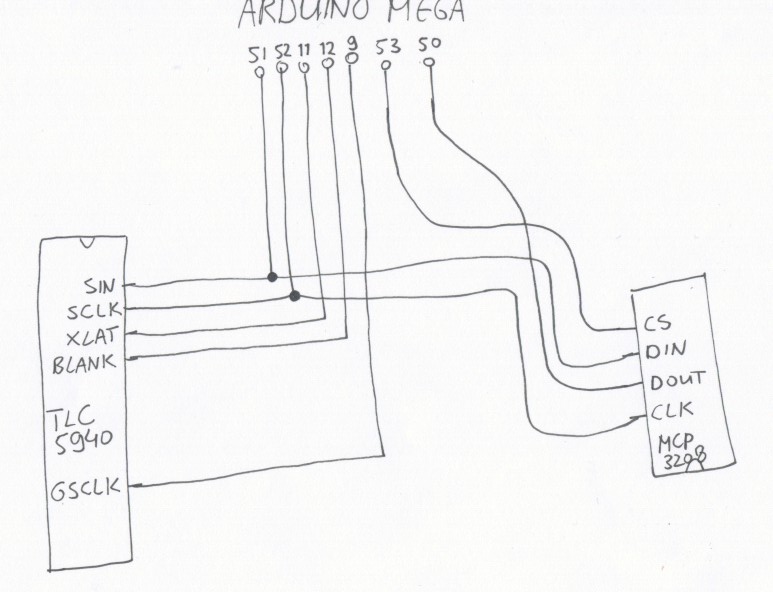 ARDUINO MEGA
51 52 11 12 9 53 50
SIN
SCLK
XLAT
BLANK
TLC
5940
GSCLK
CS
DIN
DOUT
CLK
MCP
3208